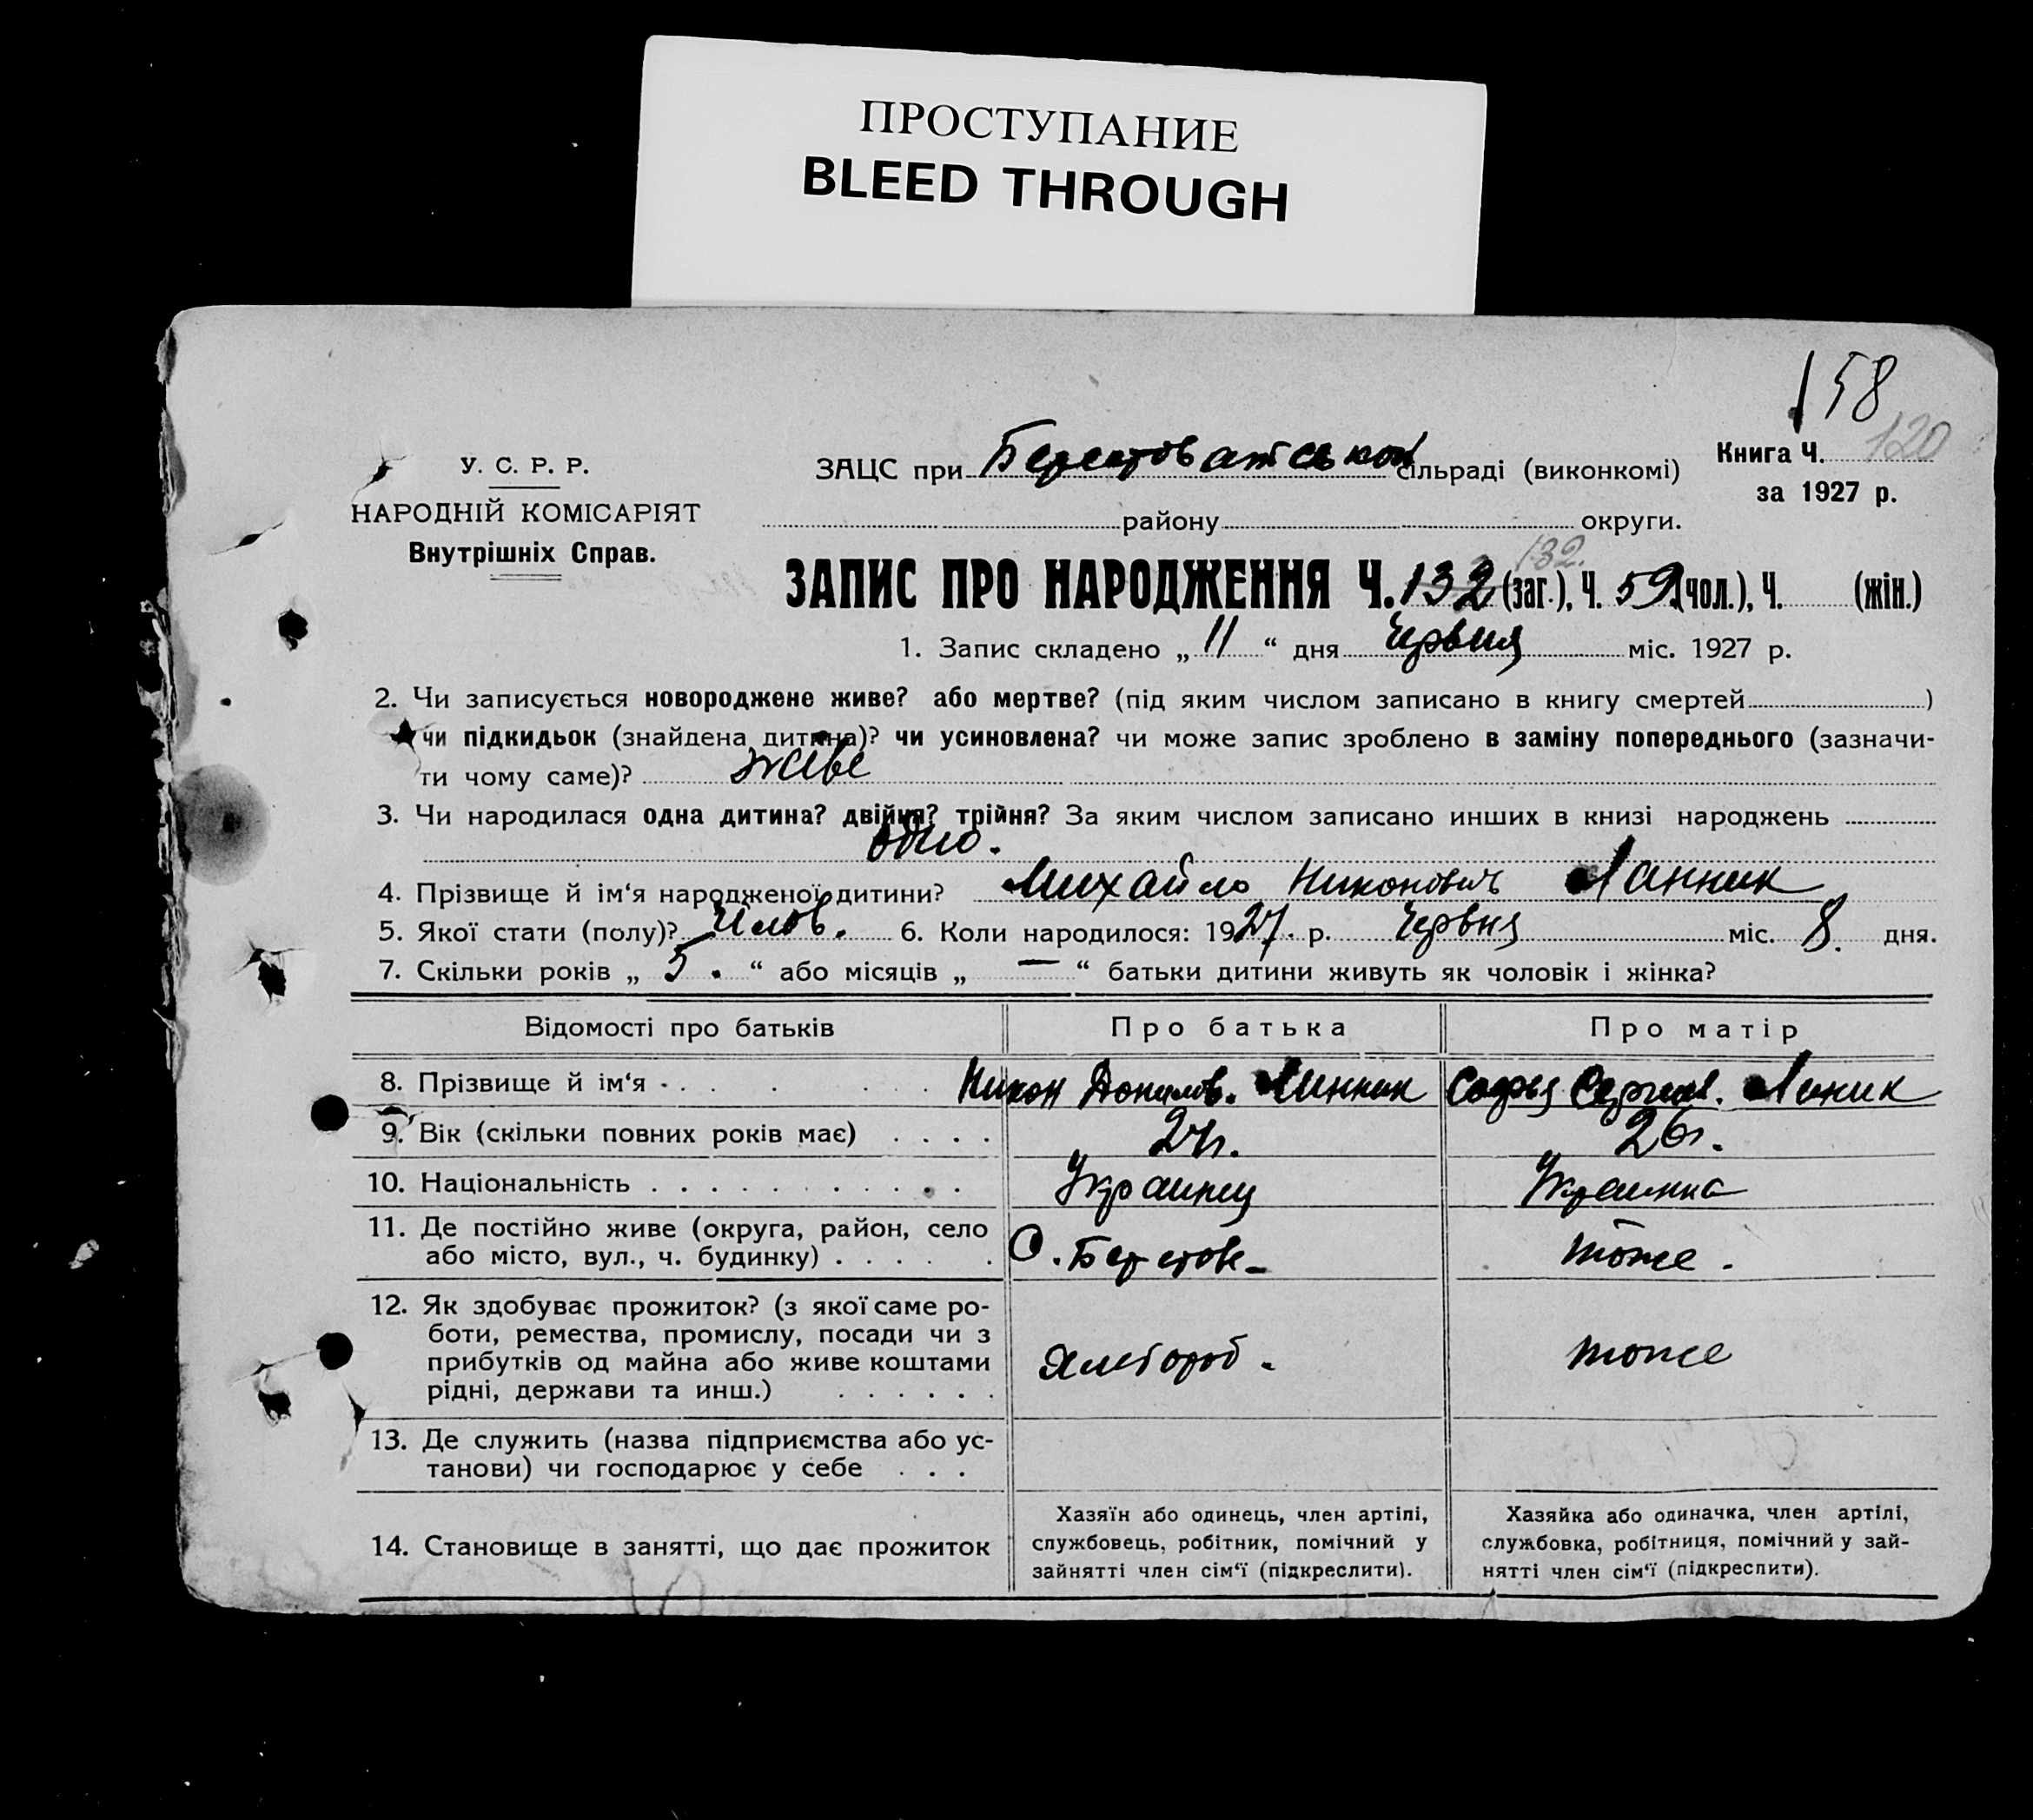 ПРОСТУПАНИЕ
BLEED THROUGH
158
У. С. Р. Р.
НАРОДНІЙ КОМІСАРІЯТ
Внутрішніх Справ.
ЗАЦС при сільраді (виконкомі)
Книга Ч. 120
за 1927 р.
району округи.
132.
ЗАПИС ПРО НАРОДЖЕННЯ Ч. 132 (заг.), Ч. 59 (чол.), Ч. (жін.)
1. Запис складено „ 11 “ дня Червня міс. 1927 р.
2. Чи записується новороджене живе? або мертве? (під яким числом записано в книгу смертей )
чи підкидьок (знайдена дитина)? чи усиновлена? чи може запис зроблено в заміну попереднього (зазначи-
ти чому саме)? живе
3. Чи народилася одна дитина? двійня? трійня? За яким числом записано инших в книзі народжень
одно.
4. Прізвище й ім‘я народженої дитини? Михайло Никонович Ланник
5. Якої стати (полу)? Чолов. 6. Коли народилося: 1927. р. Червня міс. 8. дня.
7. Скільки років „ 5. “ або місяців „ — “ батьки дитини живуть як чоловік і жінка?
Відомості про батьків Про батька Про матір
8. Прізвище й ім‘я Никон Софья
9. Вік (скільки повних років має) 26
10. Національність Украинец Украинка
11. Де постійно живе (округа, район, село
або місто, вул., ч. будинку) С. Берестове тоже.
12. Як здобуває прожиток? (з якої саме ро-
боти, ремества, промислу, посади чи з
прибутків од майна або живе коштами
рідні, держави та инш.) Хлебороб. тоже
13. Де служить (назва підприємства або ус-
танови) чи господарює у себе
14. Становище в занятті, що дає прожиток
Хазяїн або одинець, член артілі,
службовець, робітник, помічний у
зайнятті член сім‘ї (підкреслити).
Хазяйка або одиначка, член артілі,
службовка, робітниця, помічний у зай-
нятті член сім‘ї (підкреслити).